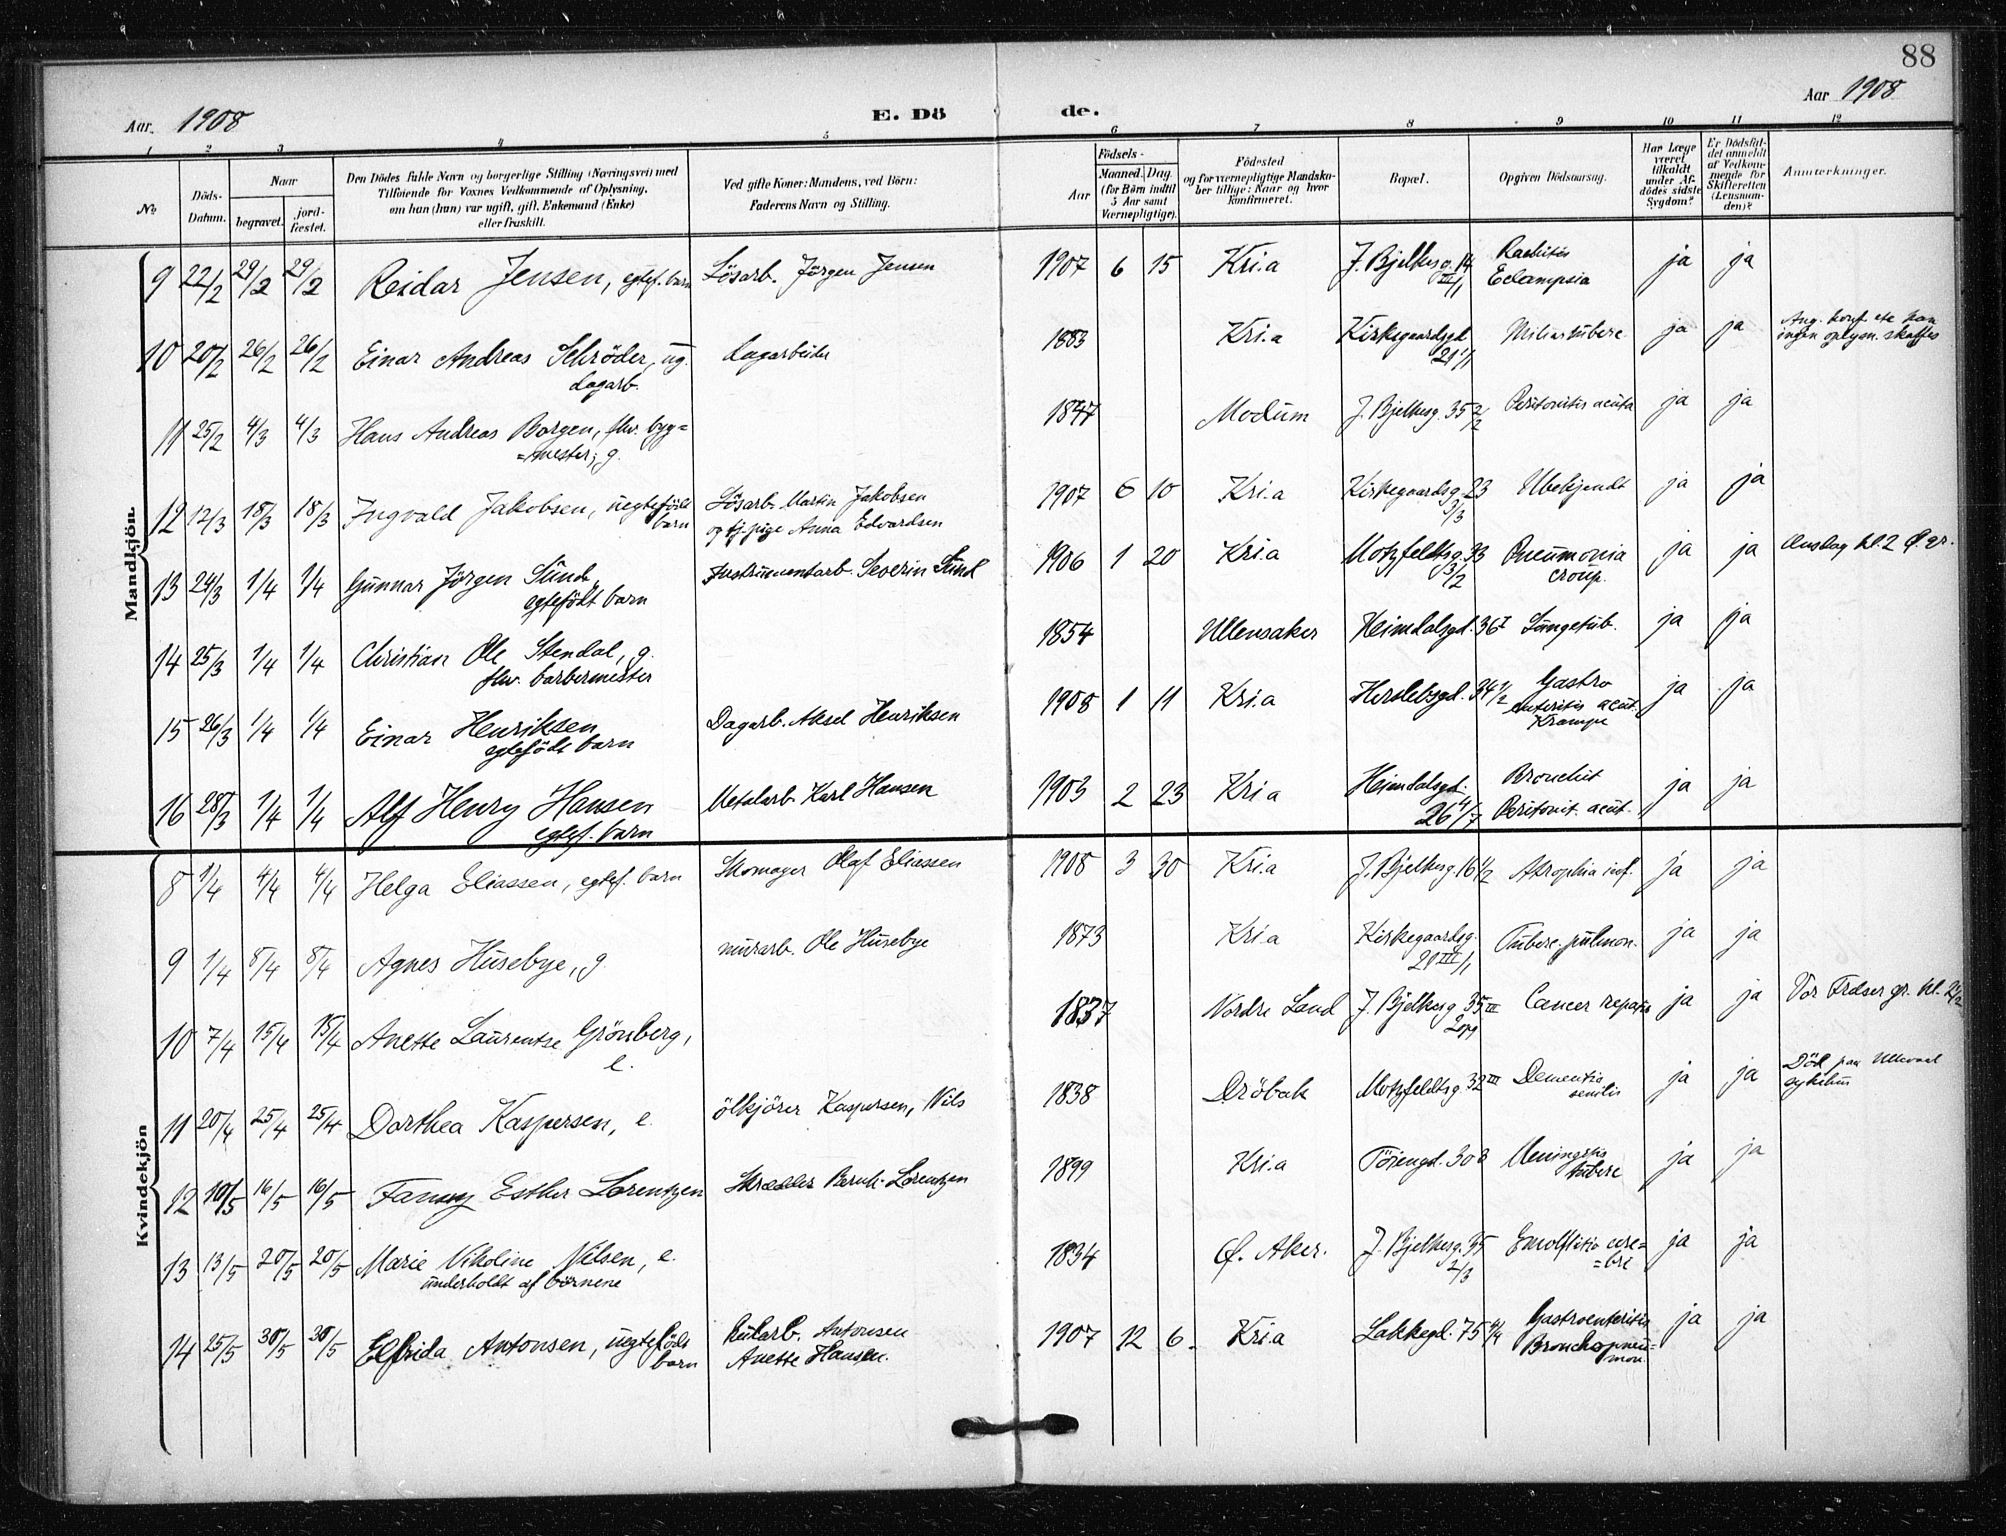 88
Aar 1908
E. Dö de.
Aar 1908
1 2 3 4 5 6 7 8 9 10 11 12
No
Döds-Datum.
Naar
begravet.
jord-fæstet.
Den Dödes fulde Navn og borgerlige Stilling (Næringsvei) med
Tilföiende for Voxnes Vedkommende af Oplysning,
om han (hun) var ugift, gift, Enkemand (Enke)
eller fraskilt.
Ved gifte Koner: Mandens, ved Börn:
Faderens Navn og Stilling.
Födsels-
Aar
Maaned. Dag.
(for Börn indtil
5 Aar samt
Værnepligtige).
Födested
og for værnepligtige Mandska-
ber tillige: Naar og hvor
konfirmeret.
Bopæl.
Opgiven Dödsaarsag.
Har Læge
været
tilkaldt
under Af-
dödes sidste
Sygdom?
Er Dödsfal-
det anmeldt
af Vedkom-
mende for
Skifteretten
(Lensman-
den)?
Anmærkninger.
Mandkjön.
9 22/2 29/2 29/2 Reidar Jensen, egtef. barn Lösarb. Jörgen Jensen 1907 6 15 Kri.a J. Bjelkesg. 14 III/1 Rachitis Eclampsia ja ja
10 20/2 26/2 26/2 Einar Andreas Schröder, ug. dagarb. dagarbeider 1883 Kri.a Kirkegaardsgd. 21 1/1 Miliartuberc. ja ja Ang. konf. etc kan ingen oplysn. skaffes
11 25/2 4/3 4/3 Hans Andreas Borgen, fhv. byg=
=mester, g. 1847 Modum J. Bjelkesg. 35 2/2 Peritonitis acuta ja ja
12 12/3 18/3 18/3 Ingvald Jakobsen, uegtefödt barn Lösarb. Martin Jakobsen
og tj.pige Anna Edvardsen 1907 6 10 Kri.a Kirkegaardsg. 23 3/3 Ubekjendt ja ja
13 24/3 1/4 1/4 Gunnar Jörgen Sund,
egtefödt barn Instrumentarb. Severin Sund 1906 1 20 Kri.a Motzfeldtsg. 33 3/2 Pneumonia croup. ja ja Onsdag kl. 2 Ø. gr.
14 25/3 1/4 1/4 Christian Ole Stendal, g.
fhv. barbermester 1854 Ullensaker Heimdalsgd. 36 I Lungetub. ja ja
15 26/3 1/4 1/4 Einar Henriksen
egtefödt barn Dagarb. Aksel Henriksen 1908 1 11 Kri.a Herslebsgd. 34 1/2 Gastro
enteritis acut.
Krampe ja ja
16 28/3 1/4 1/4 Alf Henry Hansen
egtef. barn Metalarb. Karl Hansen 1903 2 23 Kri a Heimdalsgd.
26 4/7 Bronchit
Peritonit. acut. ja ja
Kvindekjön
8 1/4 4/4 4/4 Helga Eliassen, egtef. barn Skomager Olaf Eliassen 1908 3 30 Kri.a J. Bjelkesg. 16 4/2 Atrophia inf. ja ja
9 1/4 8/4 8/4 Agnes Husebye, g. murarb. Ole Husebye 1873 Kri.a Kirkegaardsg.
21 III/1 Tuberc. pulmon. ja ja
10 7/4 15/4 15/4 Anette Laurentse Grönberg,
e. 1837 Nordre Land J. Bjelkesg 35 III
2opg Cancer hepatis ja ja Vor Frelser gr. kl. 2 1/2
11 20/4 25/4 25/4 Dorthea Kaspersen, e. ölkjörer Kaspersen, Nils 1838 Dröbak Motzfeldtsg. 32 III Dementia
senilis ja ja Död paa Ullevaal
sykehus
12 10/5 16/5 16/5 Fanny Esther Lorentzen Skrædder Bernh. Lorentzen 1899 Kri.a Töiengd. 30 Meningitis
tuberc ja ja
13 13/5 20/5 20/5 Marie Nikoline Nilsen, e.
underholdt af börnene 1834 Ø. Aker. J. Bjelkesg. 35
2/3 Emollitio cere=
=bri ja ja
14 25/5 30/5 30/5 Elfrida Antonsen, uegtefödt
barn Kularb. Antonsen
Anette Hansen. 1907 12 6. Kri.a Lakkegd. 75 4/4 Gastroenteritis
Bronchopneu=
mon. ja ja